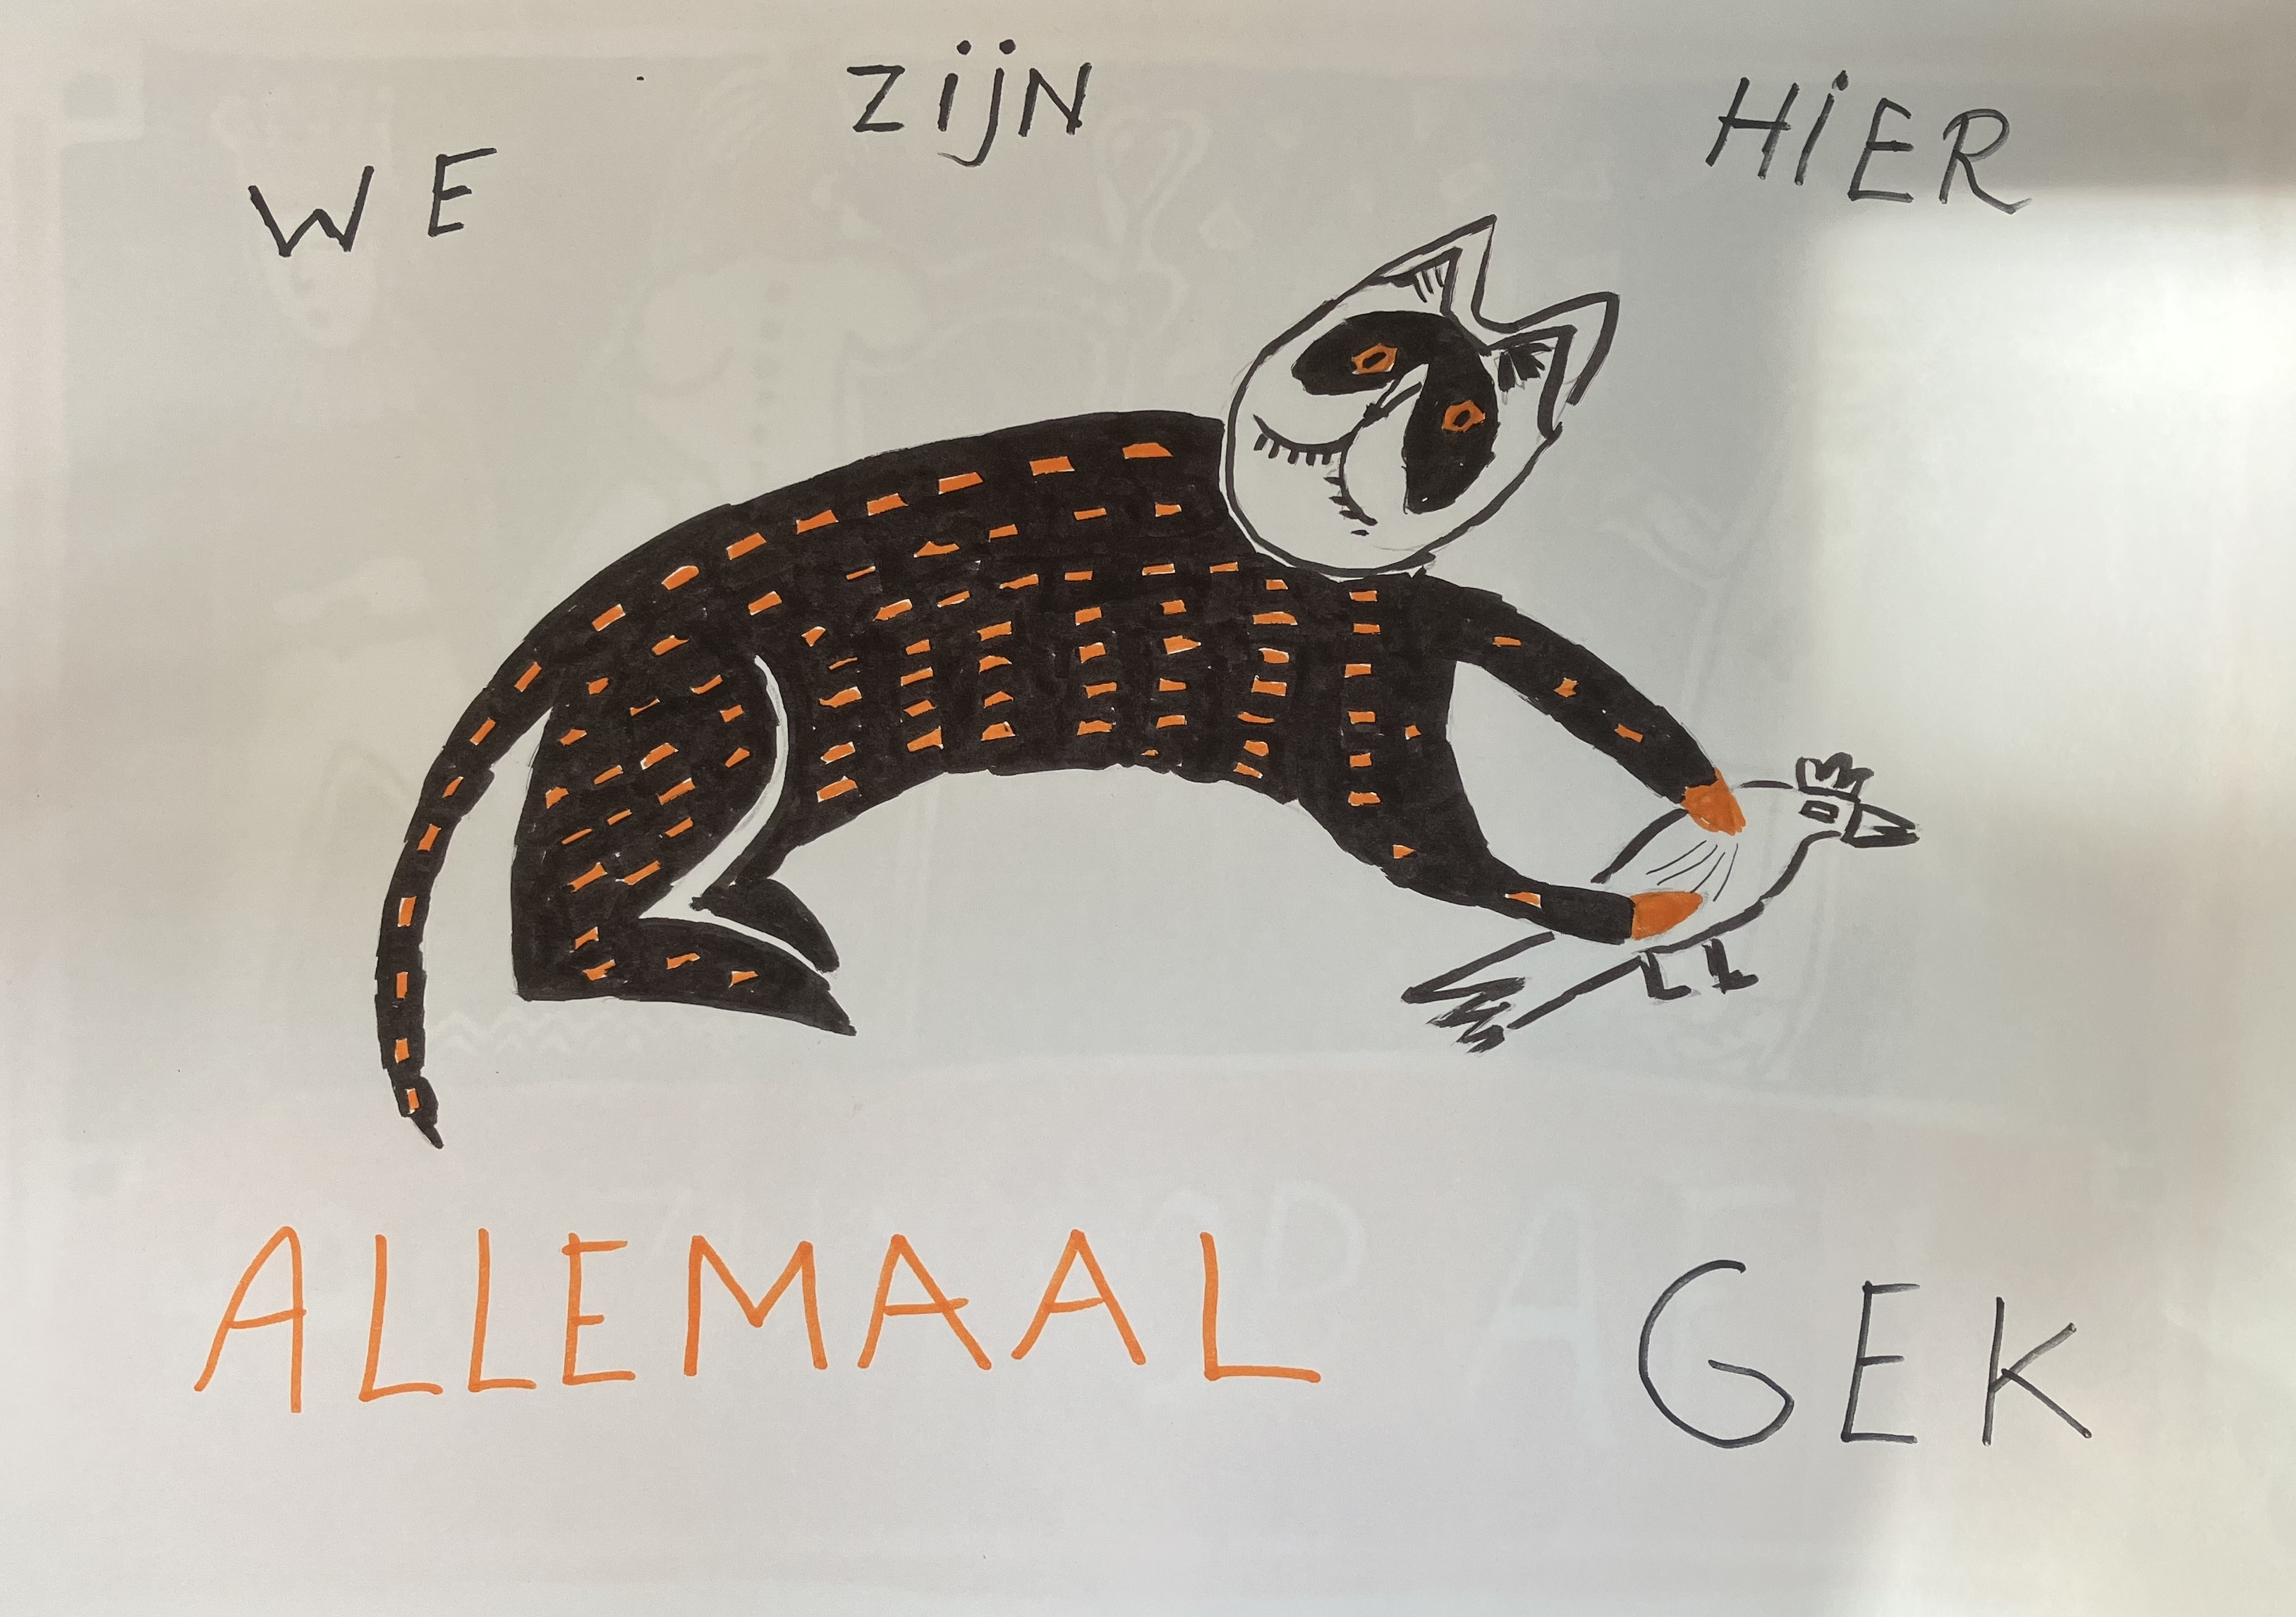 WE ZIJN HIER
ALLEMAAL GEK